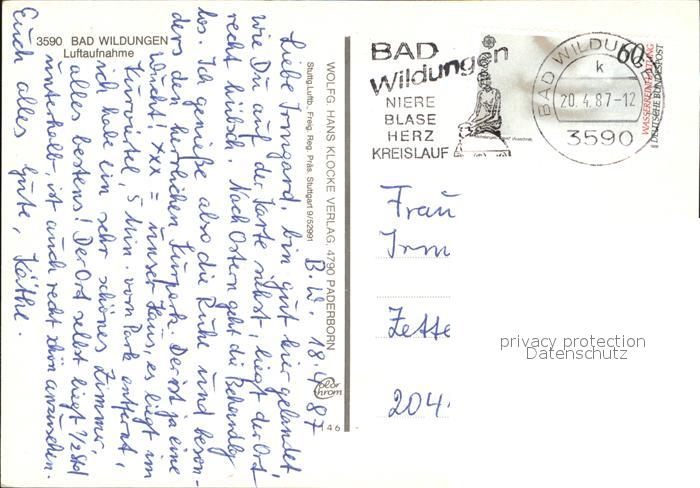 3590 BAD WILDUNGEN
Luftaufnahme
WOLFG. HANS KLOCKE VERLAG, 4790 PADERBORN
Stuttg. Luftb., Freig. Reg. Präs. Stuttgart 9/52991
color chrom
146
B. W. 18. 4. 87
Liebe Irmgard, bin gut hier gelandet,
wie Du auf der Karte siehst, liegt der Ort
recht hübsch. Nach Ostern geht die Behandlg.
los. Ich genieße also die Ruhe und beson-
ders den herrlichen Kurpark. Der ist ja eine
Wucht! xxx = unser Haus, es liegt im
Kurviertel, 5 Min. vom Park entfernt,
ich habe ein sehr schönes Zimmer,
alles bestens! Der Ort selbst liegt 1/2 Std
unterhalb, ist auch recht schön anzusehen.
Euch alles Gute, Käthe.
BAD
Wildungen
NIERE
BLASE
HERZ
KREISLAUF
BAD WILDUNGEN
k
20.4.87-12
3590
60
WASSERREINHALTUNG
DEUTSCHE BUNDESPOST
Frau
Irm
Zette
204
privacy protection
Datenschutz